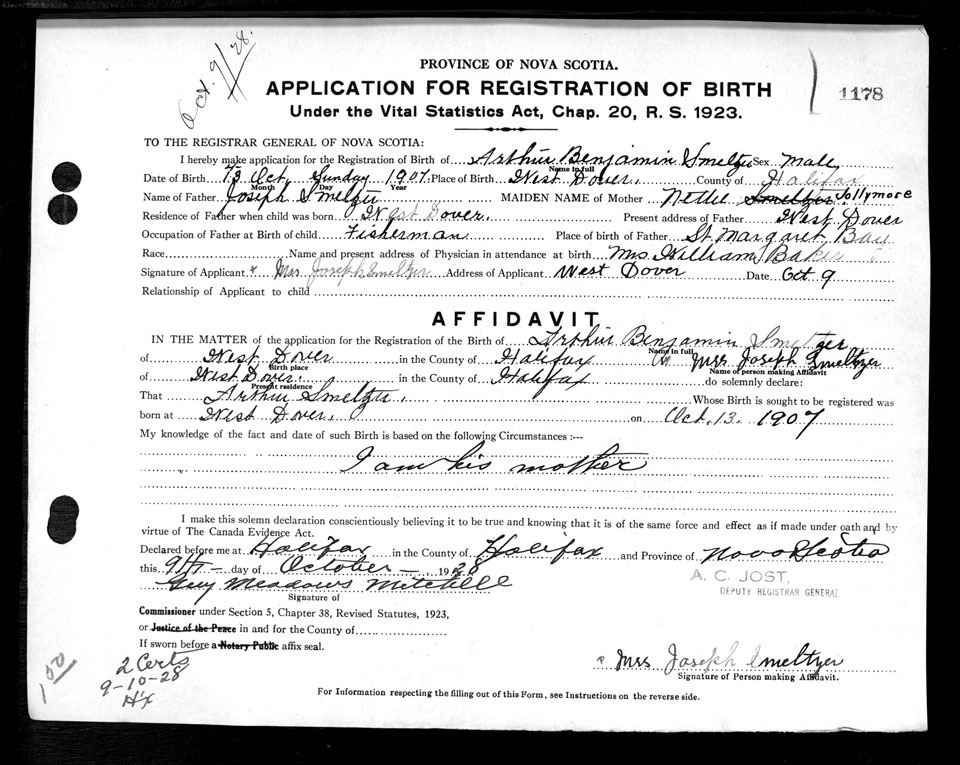 Oct. 9/28.
PROVINCE OF NOVA SCOTIA.
APPLICATION FOR REGISTRATION OF BIRTH
1178
Under the Vital Statistics Act, Chap. 20, R. S. 1923.
TO THE REGISTRAR GENERAL OF NOVA SCOTIA:
I hereby make application for the Registration of Birth of Arthur Benjamin Smeltzer Sex Male
Name in full
Date of Birth 13 Oct. Sunday 1907. Place of Birth West Dover. County of Halifax
Month Day Year
Name of Father Joseph Smeltzer MAIDEN NAME of Mother Nettie Smeltzer Jollymore
Residence of Father when child was born West Dover. Present address of Father West Dover
Occupation of Father at Birth of child Fisherman Place of birth of Father St Margaret Bay
Race Name and present address of Physician in attendance at birth Mrs. William Baker
Signature of Applicant x Mrs. Joseph Smeltzer Address of Applicant West Dover Date Oct 9
Relationship of Applicant to child
AFFIDAVIT
IN THE MATTER of the application for the Registration of the Birth of Arthur Benjamin Smeltzer
Name in full
of West Dover in the County of Halifax Mrs Joseph Smeltzer
Birth place Name of person making Affidavit
of West Dover. in the County of Halifax do solemnly declare:
Present residence
That Arthur Smeltzer. Whose Birth is sought to be registered was
born at West Dover. on Oct. 13. 1907
My knowledge of the fact and date of such Birth is based on the following Circumstances :—
I am his mother
I make this solemn declaration conscientiously believing it to be true and knowing that it is of the same force and effect as if made under oath and by
virtue of The Canada Evidence Act.
Declared before me at Halifax in the County of Halifax and Province of Nova Scotia
this 9th day of October 1928
A. C. JOST,
DEPUTY REGISTRAR GENERAL
Guy Meadows Mitchell
Signature of
Commissioner under Section 5, Chapter 38, Revised Statutes, 1923,
or Justice of the Peace in and for the County of
If sworn before a Notary Public affix seal.
x Mrs Joseph Smeltzer
Signature of Person making Affidavit.
1.50
2 Certs
9-10-28
Hx
For Information respecting the filling out of this Form, see Instructions on the reverse side.